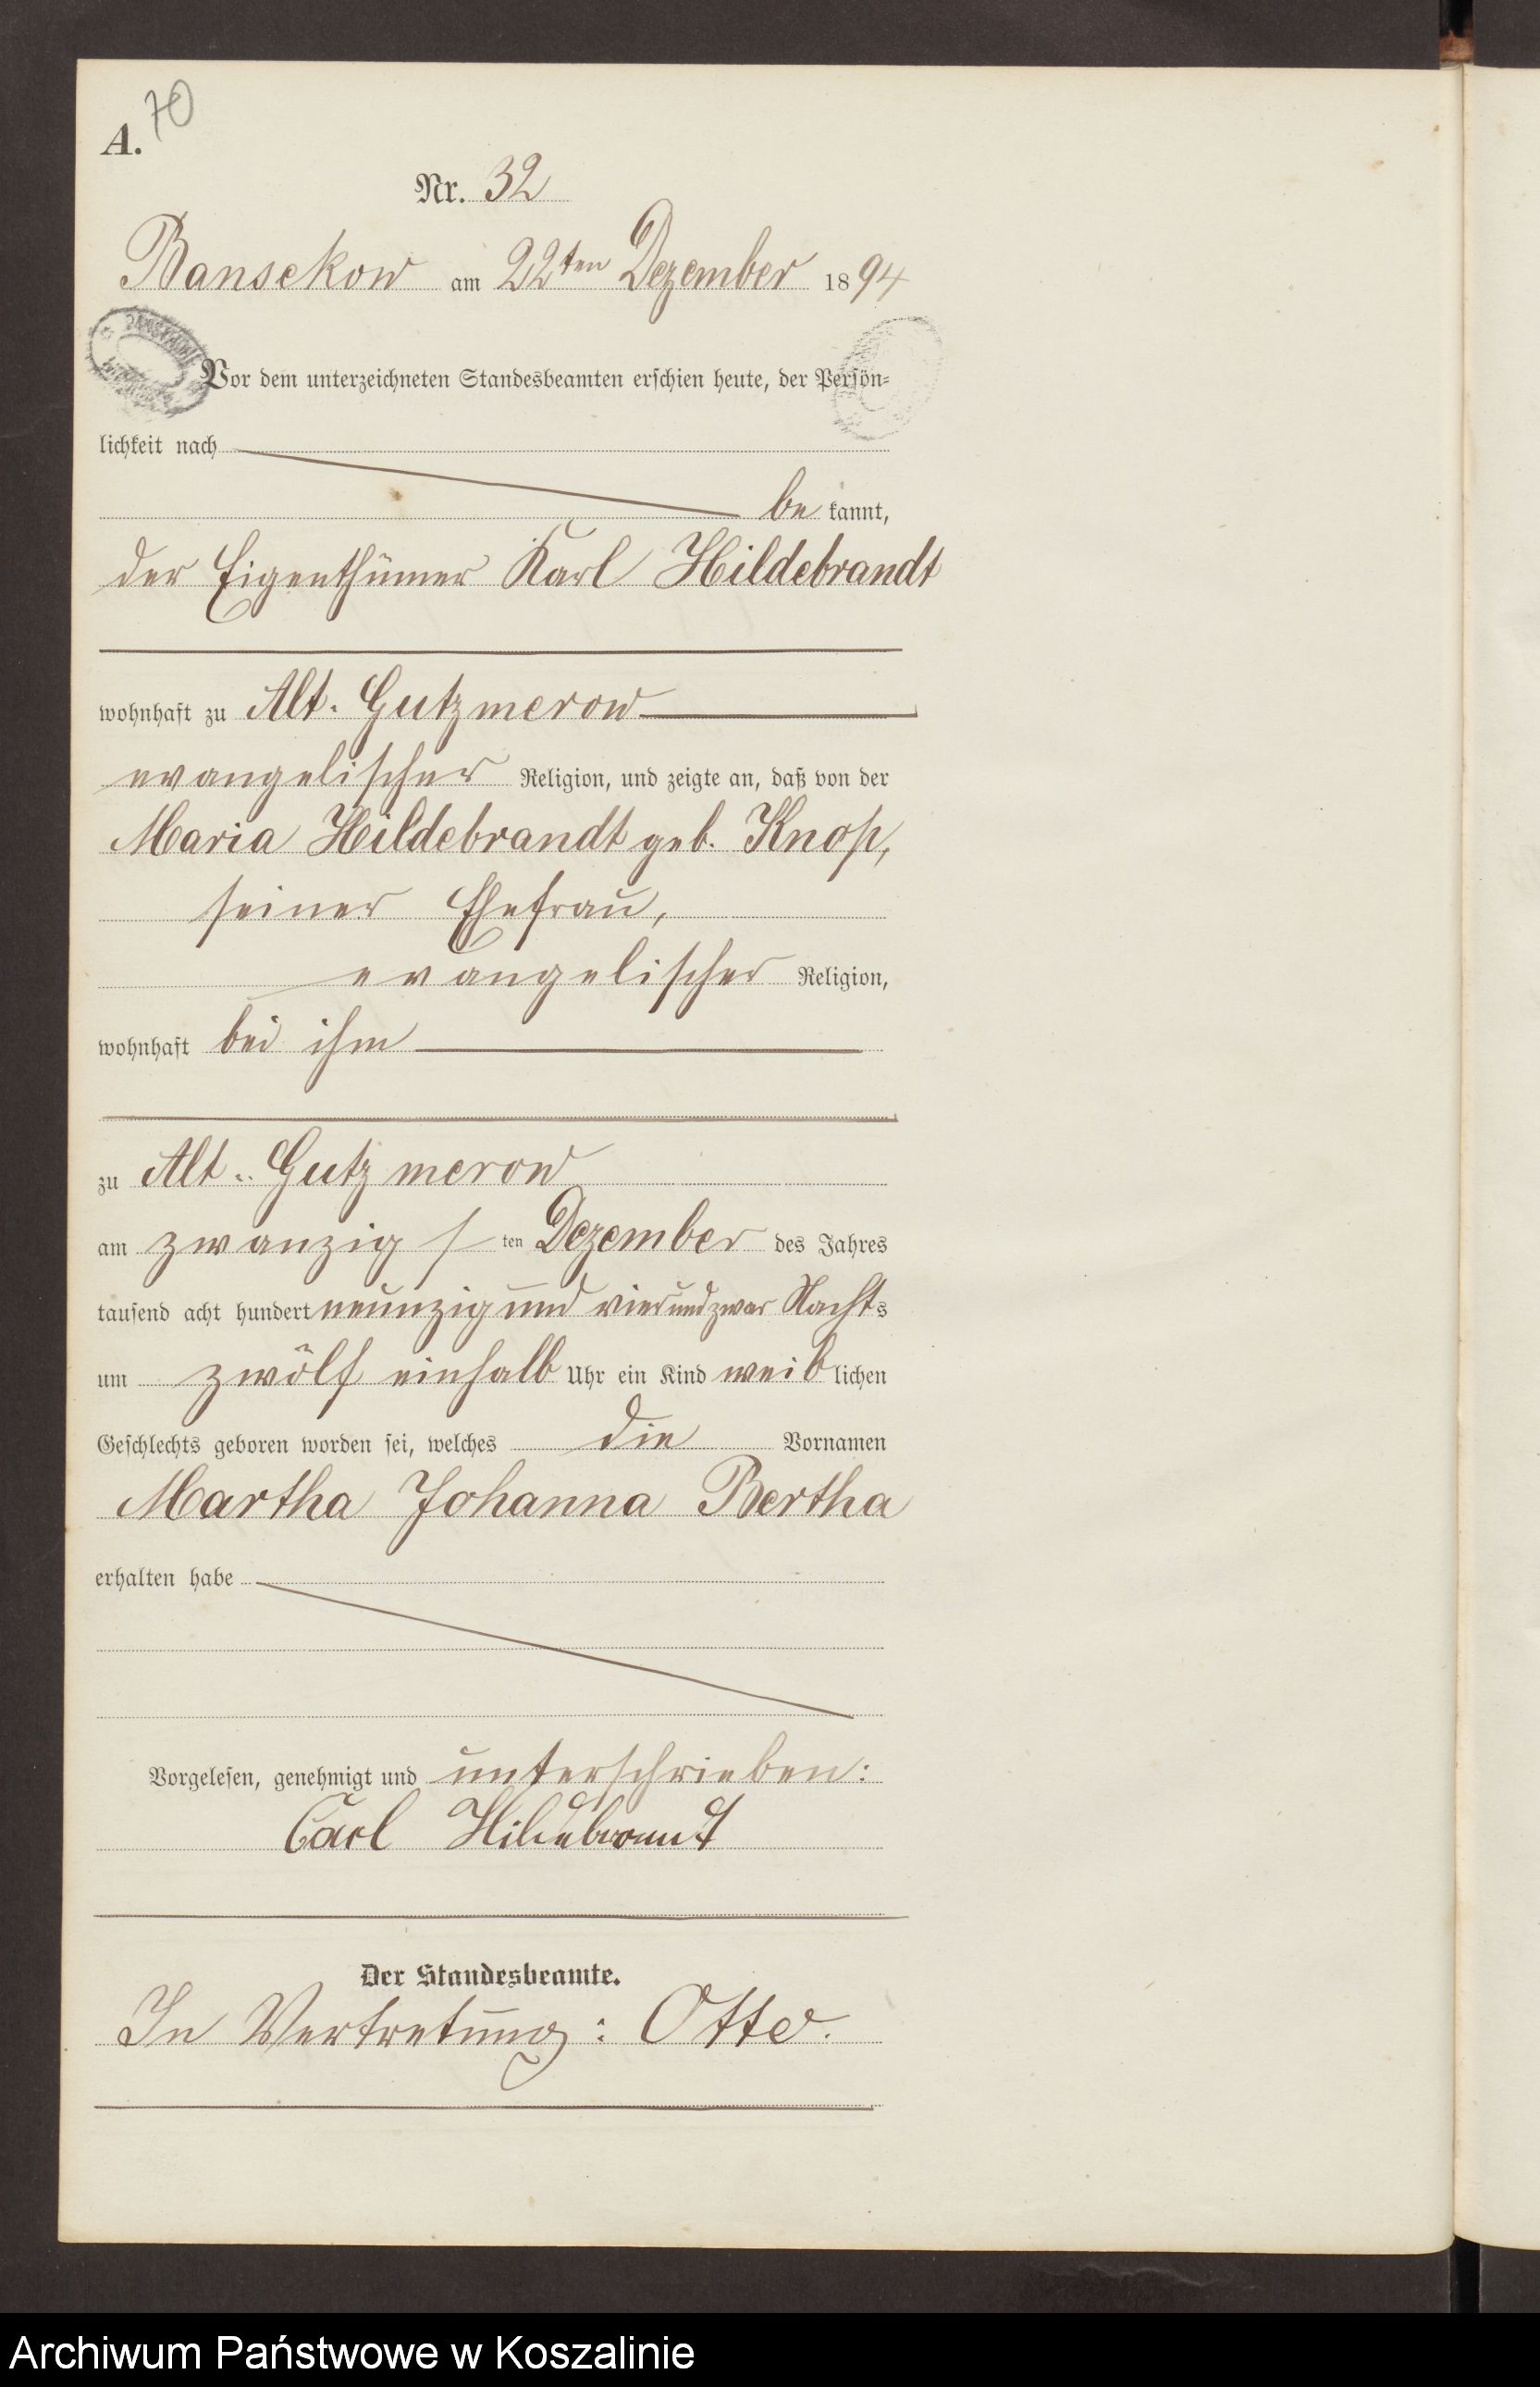 70
A.
Nr. 32
Bansekow am 22ten Dezember 1894
Vor dem unterzeichneten Standesbeamten erschien heute, der Persön-
lichkeit nach
be kannt,
der Eigenthümer Karl Hildebrandt
wohnhaft zu Alt-Gutzmerow
evangelischer Religion, und zeigte an, daß von der
Maria Hildebrandt geb. Knop,
seiner Ehefrau,
evangelischer Religion,
wohnhaft bei ihm
zu Alt-Gutzmerow
am zwanzig ten Dezember des Jahres
tausend acht hundert neunzig und vier und zwar Nachts
um zwölf einhalb Uhr ein Kind weib lichen
Geschlechts geboren worden sei, welches die Vornamen
Martha Johanna Bertha
erhalten habe
Vorgelesen, genehmigt und unterschrieben:
Carl Hildebrandt
Der Standesbeamte.
In Vertretung: Otto.
Archiwum Państwowe w Koszalinie